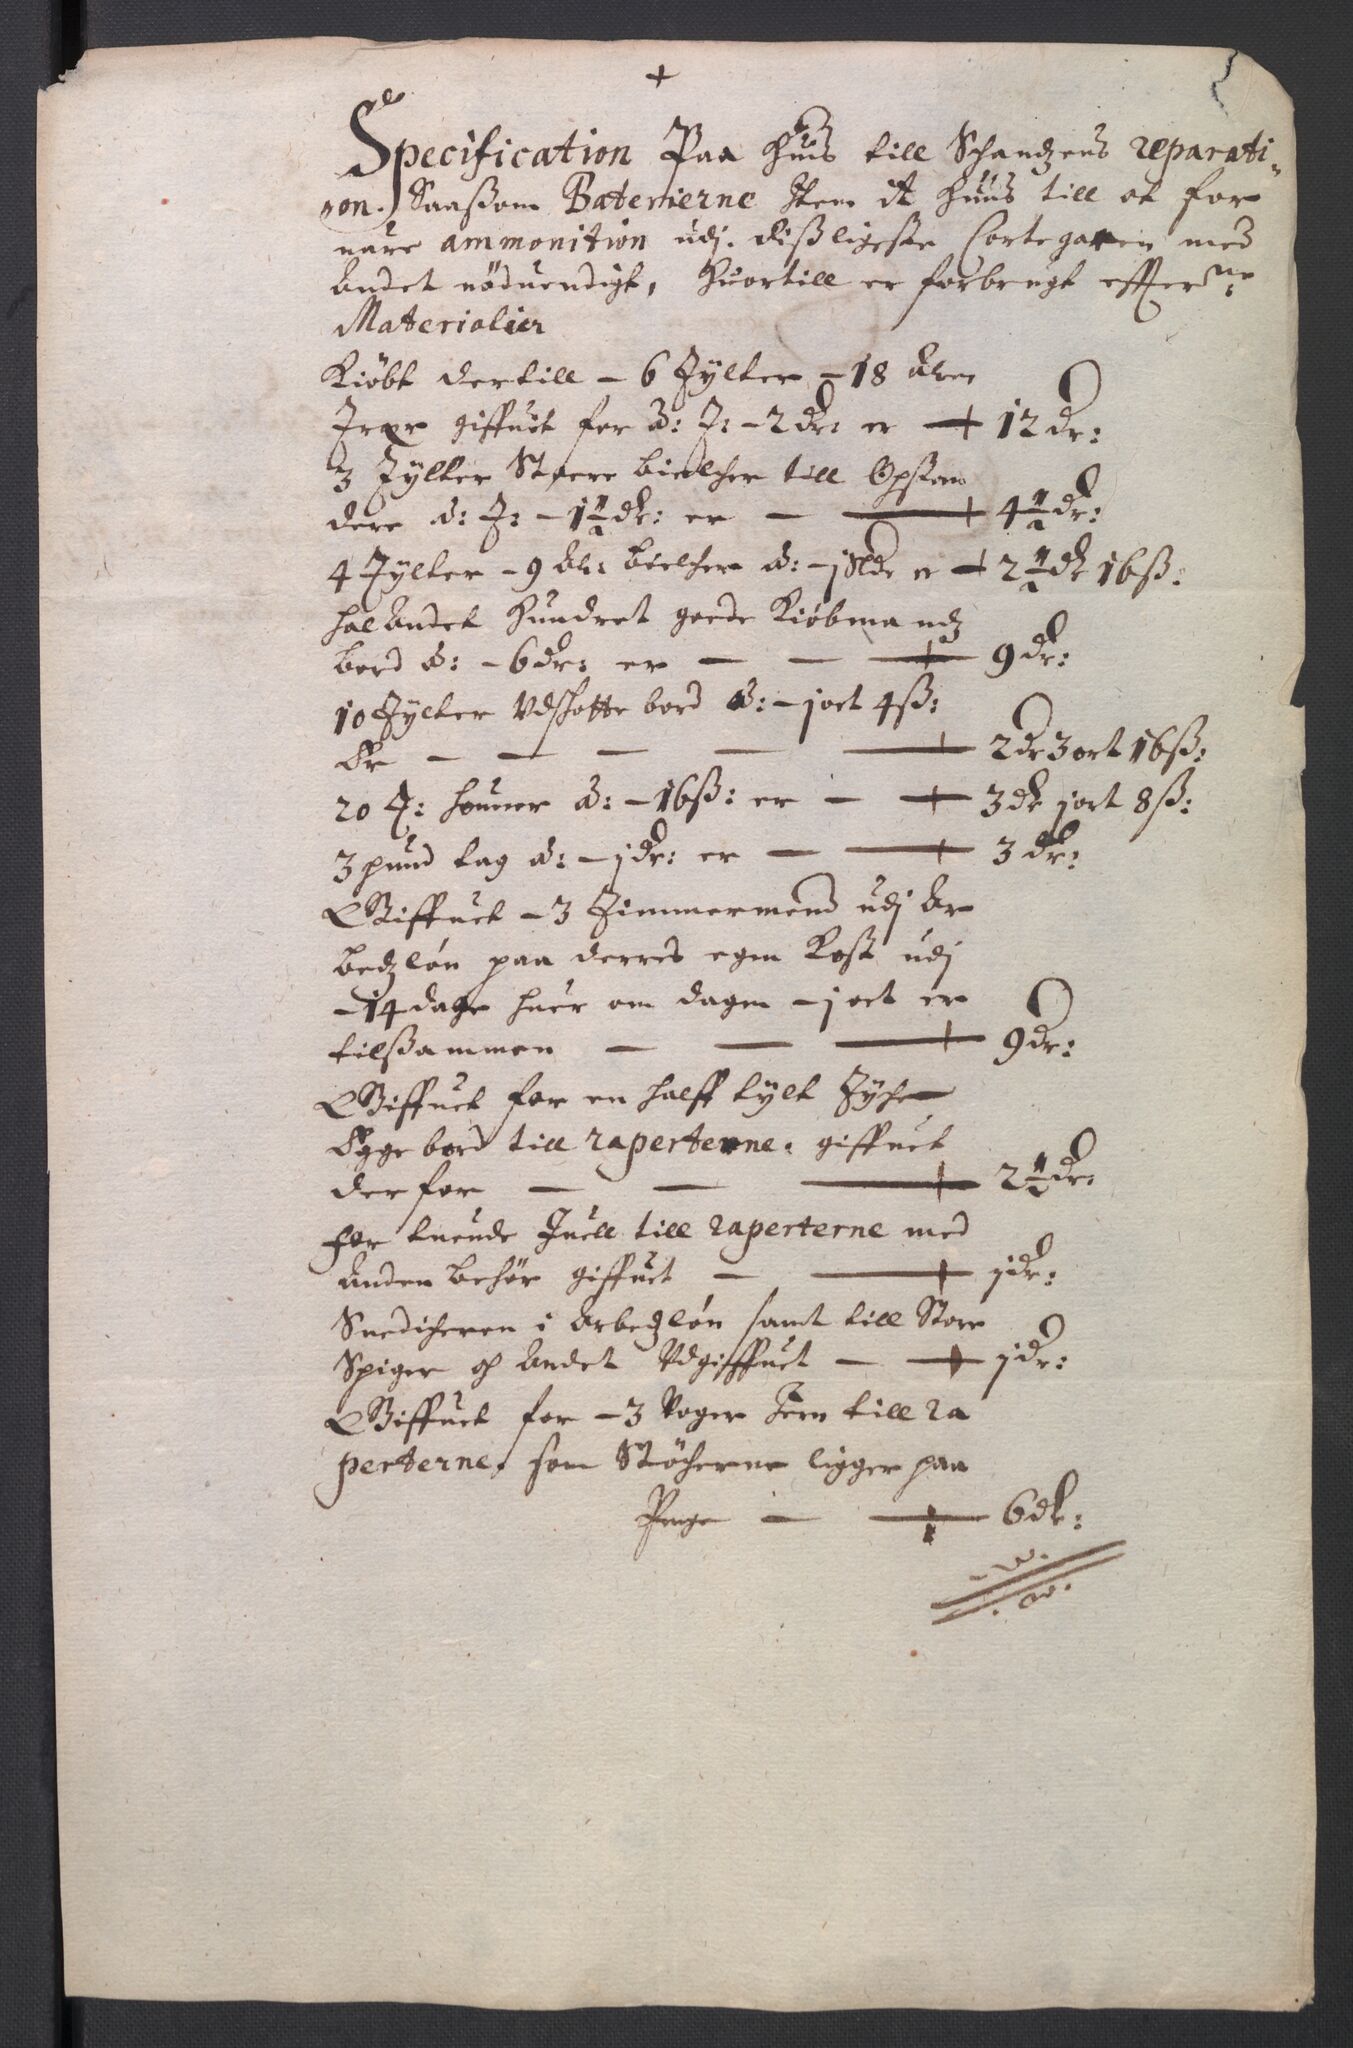 +
Specification Paa huis till Schandzens reparati-
on. Saasom Baterierne Item it huus till at for
uare ammonition udj. disligeste Cortegaren med
andet nöduendigt, huortill er forbrugt effter:ne
Materialier
Kiöbt dertill - 6 Tylter - 18 alne
Træe giffuit for a: T: - 2 dr: er 12 dr:
3 Tylter Stoere bielcher till Opstan
dere a: T: - 1½ dr: er 4½ dr:
4 Tylter - 9 al: bielcher a: - j Sldr er 2½ dr 16 ß:
halandet hundret goede Kiöbmandz
bord a: - 6 dr: er 9 dr:
10 Tylter Vdskotte bord a: - j ort 4 ß:
Er 2 dr 3 ort 16 ß:
20 houner a: - 16 ß: er 3 dr j ort 8 ß:
3 pund tag a: - j dr: er 3 dr:
Giffuet - 3 Timmermend udj Ar
bedzlön paa derres egen Kost udj
- 14 dage huer om dagen - j ort er
tilsammen 9 dr:
Giffuet for en halff tylt Tyche
Egge bord till raperterne. giffuet
der for 2½ dr:
For tuende Juell till raperterne med
anden behör giffuet j dr:
Snedicheren i Arbedzlön samt till Store
Spiger och andet Vdgiffuet j dr:
Giffuet for - 3 Voger Jern till ra
perterne, som Stöcherne ligger paa
Penge 6 dr: